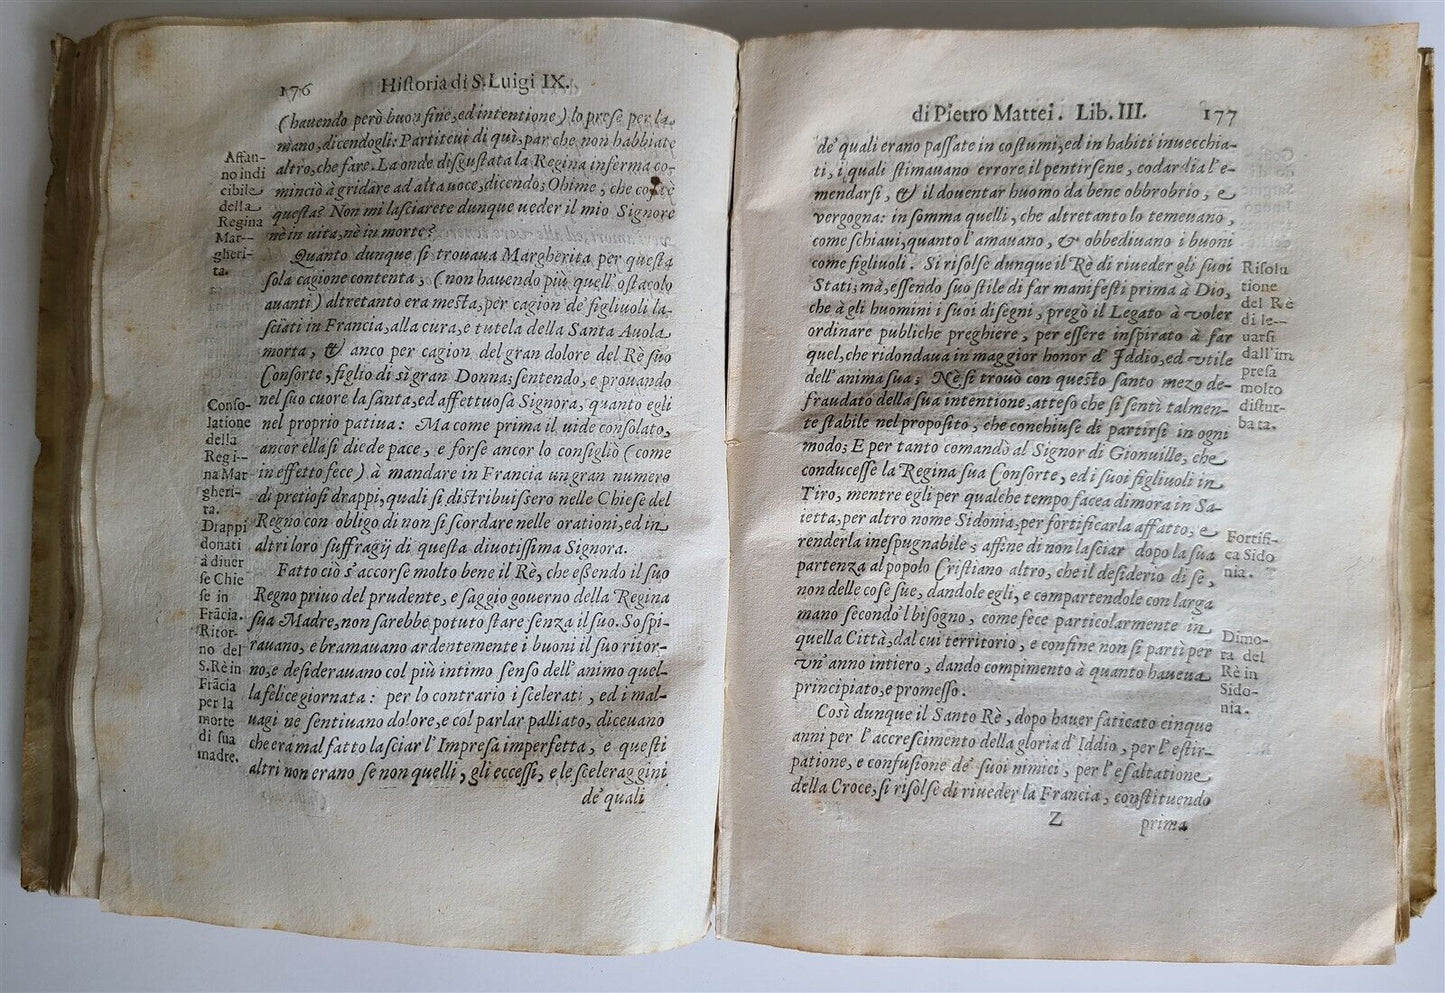 176 Hiſtoria di S. Luigi IX.
(hauendo però buon fine, ed intentione) lo preſe per la
mano, dicendogli: Partiteui di quì, par che non habbiate
altro, che fare. La onde diſguſtata la Regina inferma co-
minciò à gridare ad alta uoce, dicendo; Ohime, che coſ'è
queſta? Non mi laſciarete dunque ueder il mio Signore
nè in uita, nè in morte?
Quanto dunque ſi trouaua Margherita per queſta
ſola cagione contenta, (non hauendo più quell' oſtacolo
auanti) altretanto era meſta, per cagion de' figliuoli la-
ſciati in Francia, alla cura, e tutela della Santa Auola
morta, & anco per cagion del gran dolore del Rè ſuo
Conſorte, figlio di sì gran Donna; ſentendo, e prouando
nel ſuo cuore la ſanta, ed affettuoſa Signora, quanto egli
nel proprio patiua: Ma come prima il uide conſolato,
ancor ella ſi diede pace, e forſe ancor lo conſigliò (come
in effetto fece) à mandare in Francia un gran numero
di pretioſi drappi, quali ſi diſtribuiſſero nelle Chieſe del
Regno con obligo di non ſi ſcordare nelle orationi, ed in
altri loro ſuffragij di queſta diuotiſſima Signora.
Fatto ciò s'accorſe molto bene il Rè, che eßendo il ſuo
Regno priuo del prudente, e ſaggio gouerno della Regina
ſua Madre, non ſarebbe potuto ſtare ſenza il ſuo. Soſpi-
rauano, e bramauano ardentemente i buoni il ſuo ritor-
no, e deſiderauano col più intimo ſenſo dell' animo quel-
la felice giornata: per lo contrario i ſcelerati, ed i mal-
uagi ne ſentiuano dolore, e col parlar palliato, diceuano
che era mal fatto laſciar l'Impreſa imperfetta, e queſti
altri non erano ſe non quelli, gli ecceſſi, e le ſceleraggini
de' quali
Affan-
no indi
cibile
della
Regina
Mar-
gheri-
ta.
Conſo-
latione
della
Regi-
na Mar
gheri-
ta.
Drappi
donati
à diuer
ſe Chie
ſe in
Frãcia.
Ritor-
no del
S. Rè in
Frãcia
per la
morte
di ſua
madre.
di Pietro Mattei. Lib. III. 177
de' quali erano paſſate in coſtumi, ed in habiti inuecchia-
ti, i quali ſtimauano errore il pentirſene, codardia l'e-
mendarſi, & il douentar huomo da bene obbrobrio, e
vergogna: in ſomma quelli, che altretanto lo temeuano,
come ſchiaui, quanto l'amauano, & obbediuano i buoni
come figliuoli. Si riſolſe dunque il Rè di riueder gli ſuoi
Stati; mà, eſſendo ſuo ſtile di far manifeſti prima à Dio,
che à gli huomini i ſuoi diſegni, pregò il Legato à voler
ordinare publiche preghiere, per eſſere inſpirato à far
quel, che ridondaua in maggior honor d' Iddio, ed vtile
dell' anima ſua; Nè ſi trouò con queſto santo mezo de-
fraudato della ſua intentione, atteſo che ſi ſentì talmen-
te ſtabile nel propoſito, che conchiuſe di partirſi in ogni
modo; E per tanto comandò al Signor di Gionuille, che
conduceſſe la Regina ſua Conſorte, ed i ſuoi figliuoli in
Tiro, mentre egli per qualche tempo facea dimora in Sa-
ietta, per altro nome Sidonia, per fortificarla affatto, e
renderla ineſpugnabile; affine di non laſciar dopo la ſua
partenza al popolo Criſtiano altro, che il deſiderio di ſe,
non delle coſe ſue, dandole egli, e compartendole con larga
mano ſecondo 'l biſogno, come fece particolarmente in
quella Città, dal cui territorio, e confine non ſi partì per
vn' anno intiero, dando compimento à quanto haueua
principiato, e promeſſo.
Così dunque il Santo Rè, dopo hauer faticato cinque
anni per l'accreſcimento della gloria d'Iddio, per l'eſtir-
patione, e confuſione de' ſuoi nimici, per l'eſaltatione
della Croce, ſi riſolſe di riueder la Francia, conſtituendo
Z prima
Riſolu
tione
del Rè
di le-
uarſi
dall'im
preſa
molto
diſtur-
bata.
Fortifi-
ca Sido
nia.
Dimo-
ra del
Rè in
Sido-
nia.